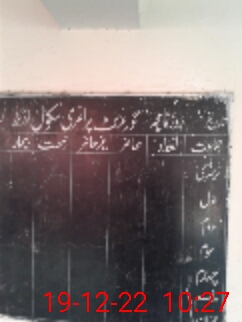 روزنامچہ گورنمنٹ پرائمری سکول
جماعت تعداد حاضر غیرحاضر رخصت بیمار
نرسری
اول
دوم
سوم
چہارم
19-12-22 10:27